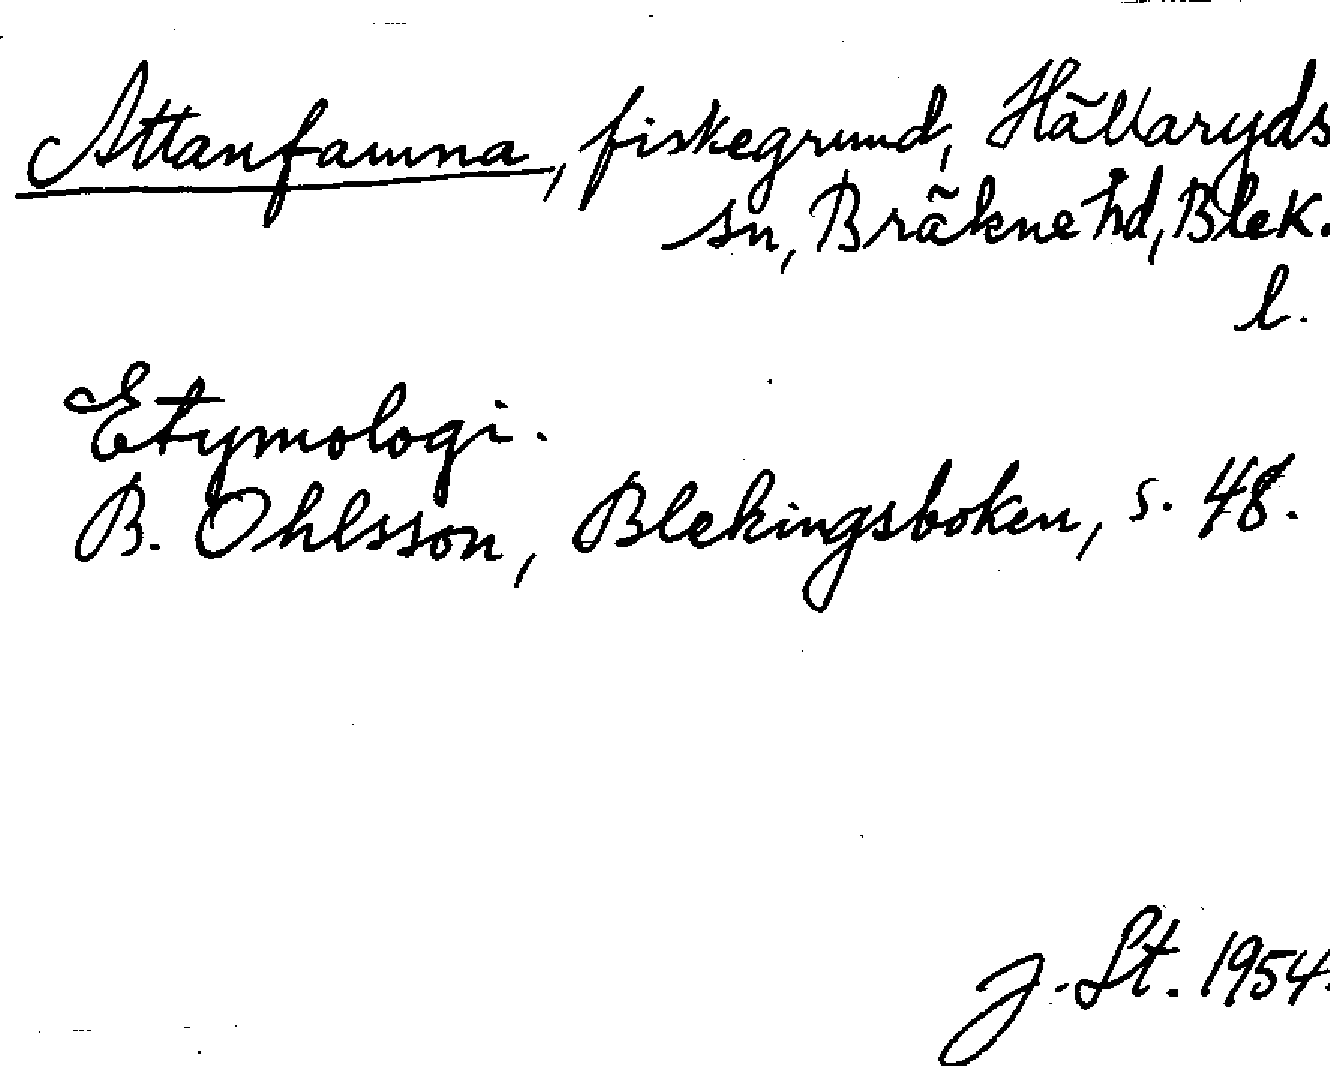 Attanfamna, fiskegrund, Hällaryds
sn, Bräkne hd, Blek.
l.
Etymologi.
B. Ohlsson, Blekingsboken, s. 48.
J. St. 1954.